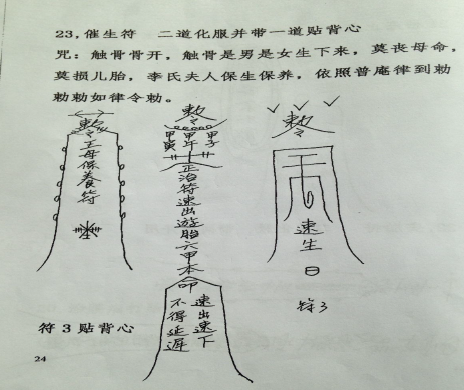 23，催生符　二道化服并带一道贴背心
咒：触骨骨开，触骨是男是女生下来，莫丧母命，
莫损儿胎，李氏夫人保生保养，依照普庵律到勅
勅勅如律令勅。
敕令王母保養符
敕令
甲寅 甲午 甲子
正治符速出遊胎六甲本命
速出速下
不得延遲
敕令
速生
日
符3
符3贴背心
24